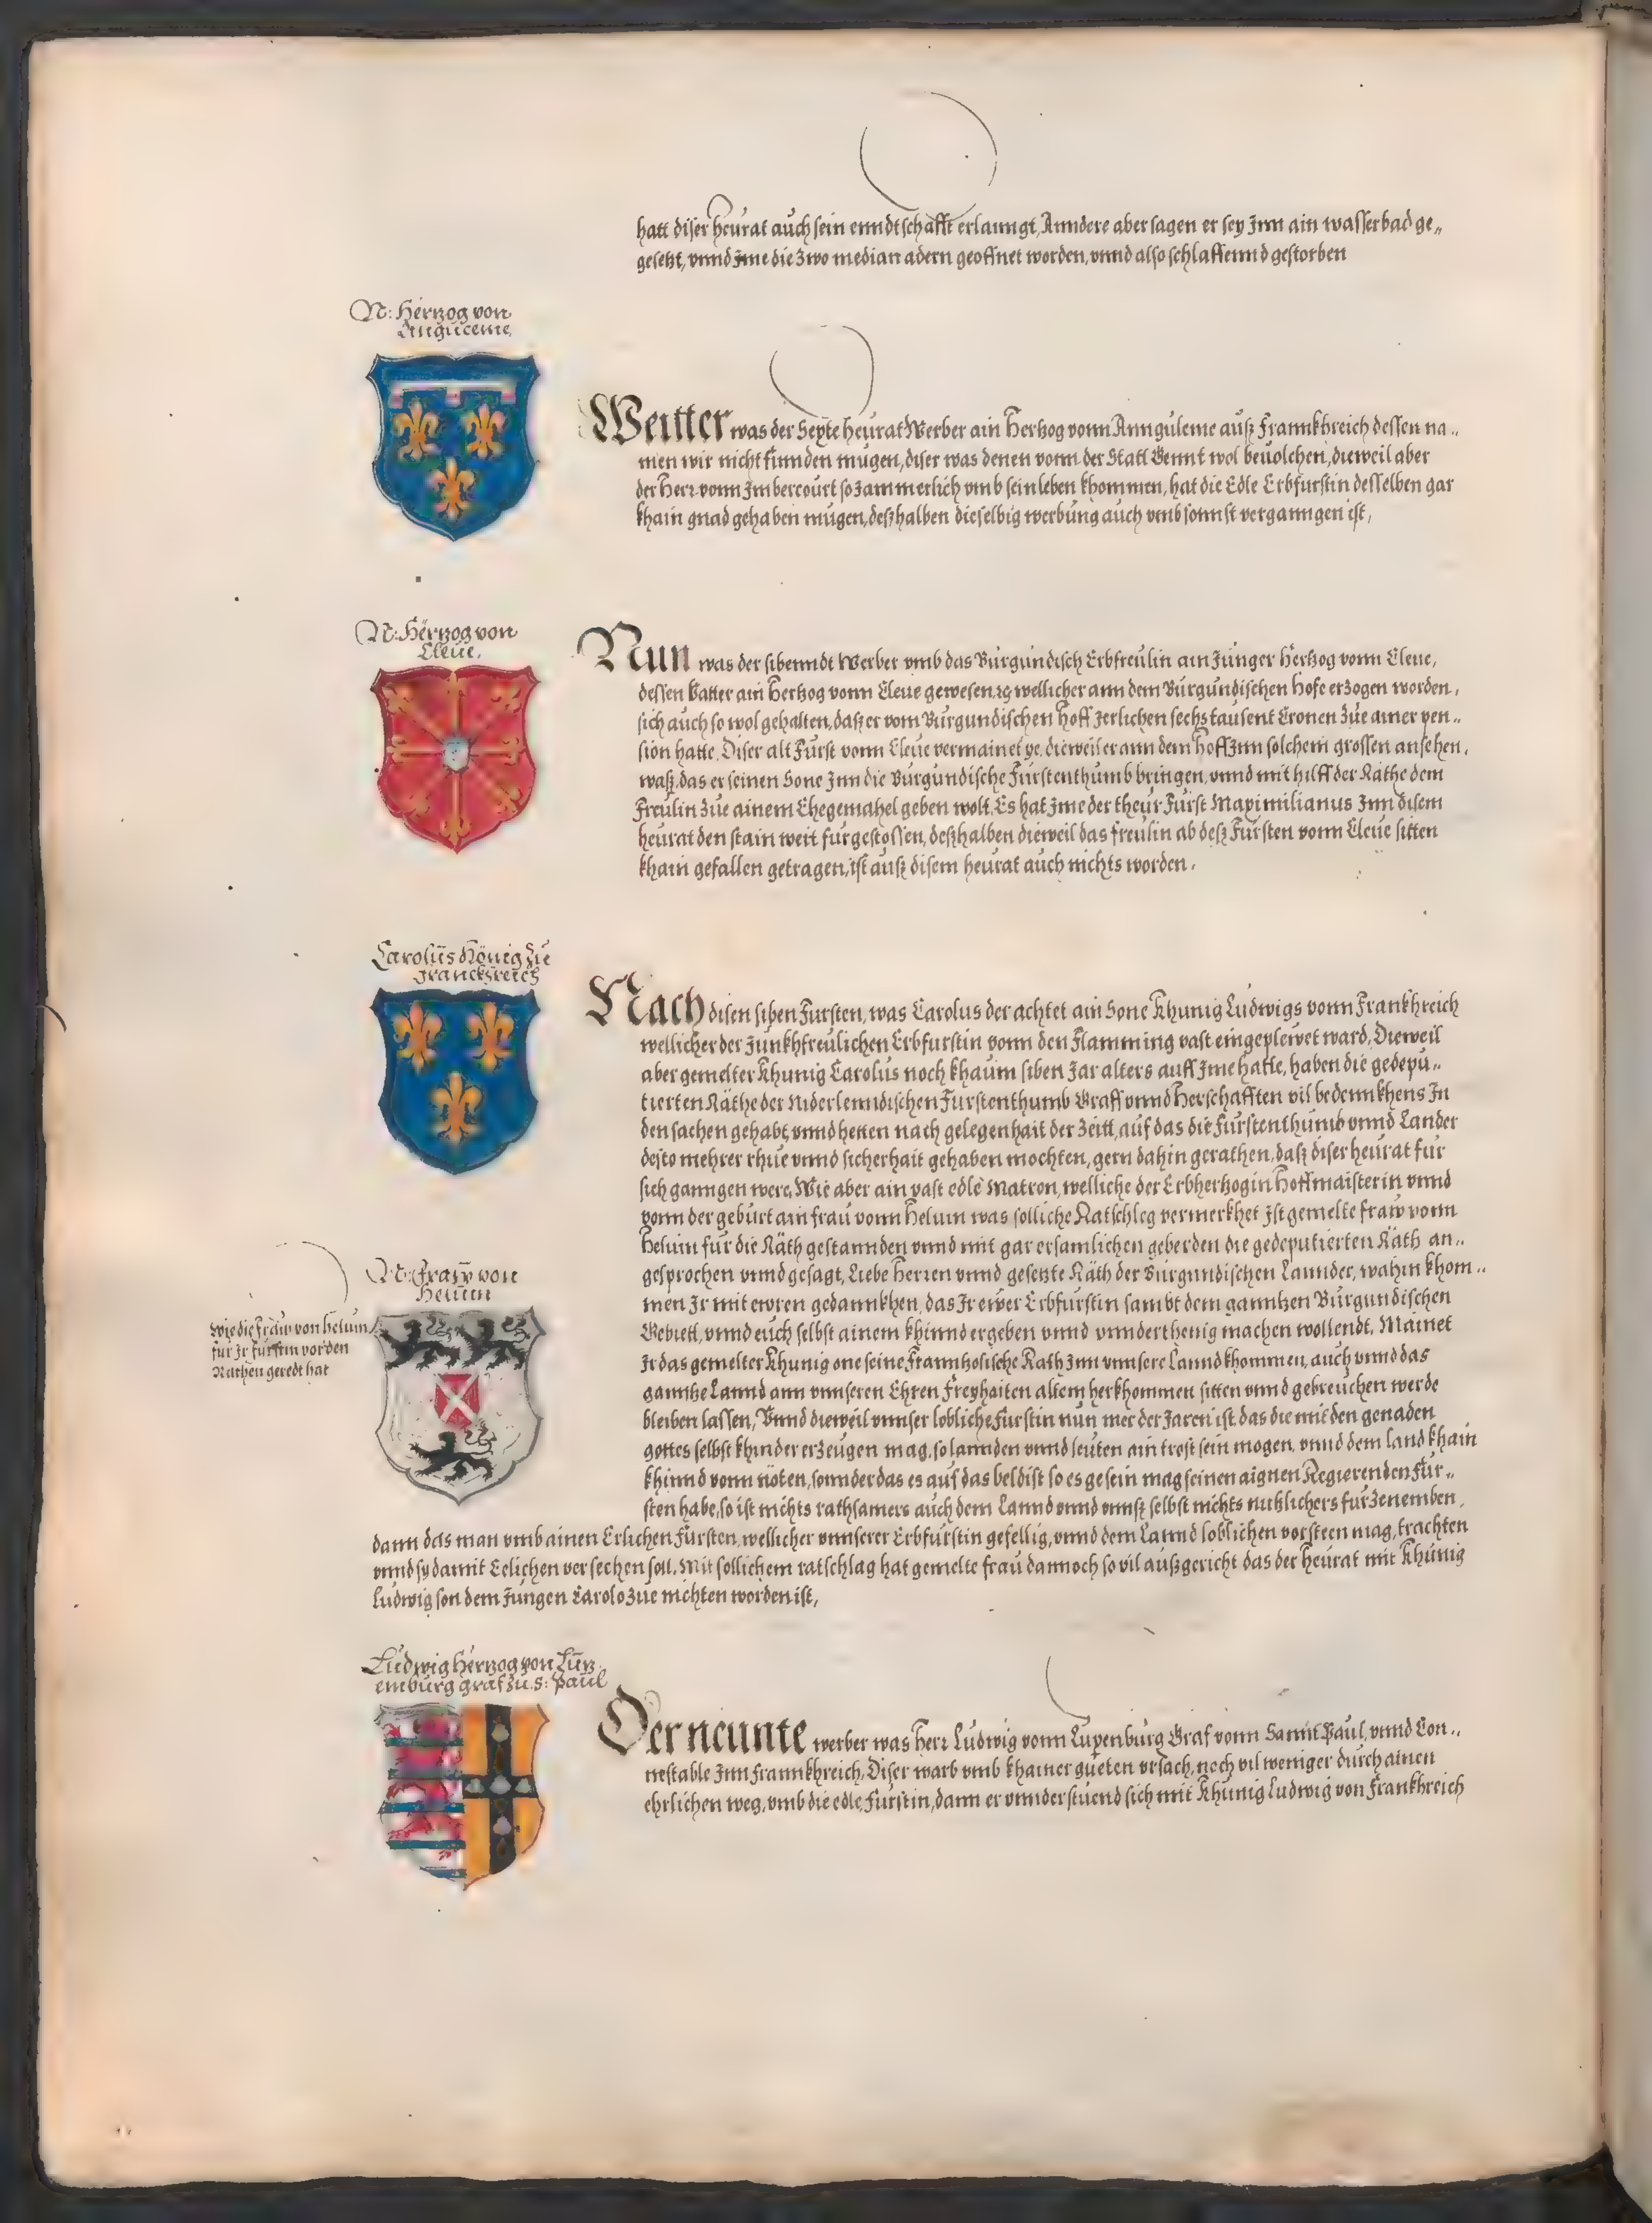 hatt diser heürat aúch sein enndtschafft erlanngt, Anndere aber sagen er sey Inn ain wasserbad ge„
gesetzt, vnnd Ime die zwo median adern geoffnet worden, vnnd also schlaffennd gestorben
N: Hertzog von
Anguleme,
Weitter was der Sexte heürat Werber ain Hertzog vonn Annguleme auß Frannkhreich dessen na„
men wir nicht finnden mügen, diser was denen vonn der Statt Gennt wol beuolchen, dieweil aber
der Herr vonn Imbercoúrt so Jammerlich vmb sein leben khommen, hat die Edle Erbfurstin desselben gar
khain gnad gehaben mügen, deßhalben dieselbig werbúng aúch vmb sonnst verganngen ist,
N: Hertzog von
Cleue,
Nun was der sibenndt Werber vmb das Burgundisch Erbfreülin ain Junger Hertzog vonn Cleue,
dessen Vatter ain Hertzog vonn Cleue gewesen, wellicher ann dem Búrgúndischen Hofe erzogen worden,
sich auch so wol gehalten, daß er vom Búrgundischen Hoff Jerlichen sechs tausent Cronen zúe ainer pen„
sion hatte. Diser alt Fürst vonn Cleue vermainet ye, dieweil er ann dem Hoff Inn solchem grossen ansehen,
waß, das er seinen Sone Inn die Burgundische Fürstenthumb bringen, vnnd mit hilff der Räthe dem
Freülin zúe ainem Ehegemahel geben wolt, Es hat Ime der theúr Fürst Maximilianus Inn disem
heürat den stain weit furgestossen, deßhalben dieweil das freülin ab deß Fürsten vonn Cleue sitten
khain gefallen getragen, ist auß disem heúrat auch nichts worden.
Carolús König zú
Franckhreich
Nach disen siben Fursten, was Carolus der achtet ain Sone Khunig Lúdwigs vonn Frankhreich
wellicher der Junkhfreülichen Erbfurstin vonn den Flamming vast eingeplewet ward, Dieweil
aber gemelter Khunig Carolús noch khaum siben Jar alters auff Ime hatte, haben die gedepú„
tierten Räthe der Niderlenndischen Furstenthumb Graff vnnd Herschafften vil bedennkhens In
den sachen gehabt, vnnd hetten nach gelegenhait der zeitt, auf das die Fürstenthumb vnnd Lander
desto mehrer rhue vnnd sicherhait gehaben mochten, gern dahin gerathen, daß diser heürat für
sich ganngen were, Wie aber ain vast edle Matron, welliche der Erbhertzogin Hoffmaisterin vnnd
vonn der geburt ain fraú vonn Heluin was solliche Ratschleg vermerkhet Ist gemelte fraw vonn
Heluin für die Räth gestannden vnnd mit gar ersamlichen geberden die gedeputierten Räth an„
gesprochen vnnd gesagt, Liebe Herren vnnd gesetzte Räth der Búrgundischen Lannder, wahin khom„
N: Fraw von
Heluin
Wie die Fraw von Heluin
für Ir fürstin vor den
Räthen geredt hat
men Ir mit ewren gedannkhen, das Ir ewer Erbfürstin sambt dem ganntzen Búrgundischen
Gebiett, vnnd euch selbst ainem khinnd ergeben vnnd vnnderthenig machen wollendt, Mainet
Ir das gemelter Khunig one seine Frannzosische Räth Inn vnnsere Lannd khommen, auch vnnd das
ganntze Lannd ann vnnseren Ehren Freyhaiten altem herkhommen sitten vnnd gebreuchen werde
bleiben lassen, Vnnd dieweil vnnser lobliche Furstin nun mer der Jaren ist, das die mit den genaden
gottes selbst khinder erzeugen mag, so lannden vnnd leuten ain trost sein mogen, vnnd dem land khain
khinnd vonn nöten, sonnder das es auf das beldist so es gesein mag seinen aignen Regierenden Für„
sten habe, so ist nichts rathsamers auch dem Lannd vnnd vnnß selbst nichts nutzlichers für zenemben,
dann das man vmb ainen Erlichen Fürsten, wellicher vnnserer Erbfürstin gefellig, vnnd dem Lannd loblichen vorsteen mag, trachten
vnnd sy damit Eelichen versechen soll. Mit sollichem ratschlag hat gemelte frau dannoch so vil außgericht das der heurat mit Khúnig
Lúdwig son dem Jungen Carolo zue nichten worden ist,
Lúdwig Hertzog von Lütz
emburg graf zú. S: Paúl
Der neunte werber was Herr Lúdwig vonn Luxenbúrg Graf vonn Sannt Paul, vnnd Con„
nestable Inn Frannkhreich, Diser warb vmb khainer gúeten vrsach, noch vil weniger durch ainen
ehrlichen weg, vmb die edle Furstin, dann er vnnderstúend sich mit Khünig Ludwig von Frankhreich